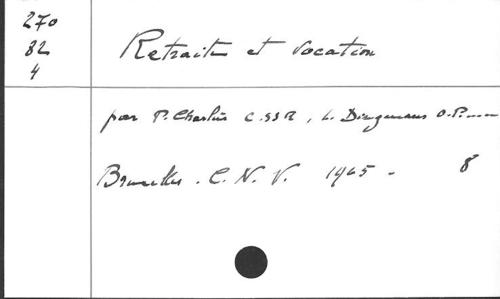 270
82
4
Retraite et vocation
par P. Charlier C.SS R, L. Dingemans O.P.
Bruxelles. C. N. V. 1965 - 8